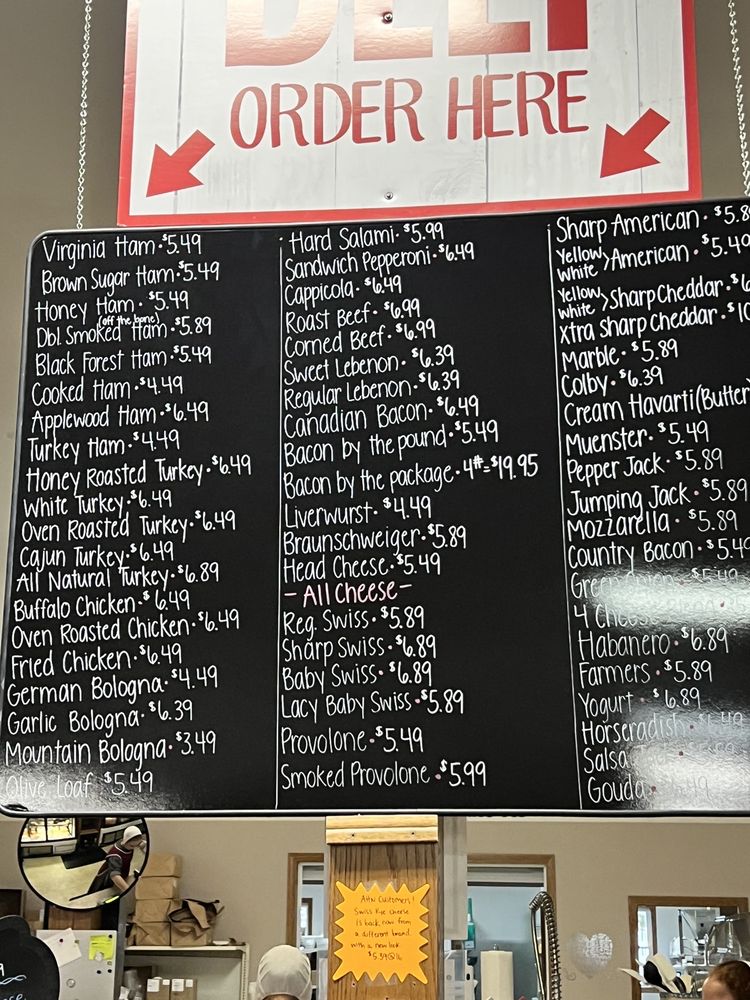 DELI
ORDER HERE
Virginia Ham • $5.49
Brown Sugar Ham • $5.49
Honey Ham • $5.49
(off the bone)
Dbl. Smoked Ham • $5.89
Black Forest Ham • $5.49
Cooked Ham • $4.49
Applewood Ham • $6.49
Turkey Ham • $4.49
Honey Roasted Turkey • $6.49
White Turkey • $6.49
Oven Roasted Turkey • $6.49
Cajun Turkey • $6.49
All Natural Turkey • $6.89
Buffalo Chicken • $6.49
Oven Roasted Chicken • $6.49
Fried Chicken • $6.49
German Bologna • $4.49
Garlic Bologna • $6.39
Mountain Bologna • $3.49
Olive Loaf $5.49
Hard Salami • $5.99
Sandwich Pepperoni • $6.49
Cappicola • $6.49
Roast Beef • $6.99
Corned Beef • $6.99
Sweet Lebenon • $6.39
Regular Lebenon • $6.39
Canadian Bacon • $6.49
Bacon by the pound • $5.49
Bacon by the package • 4# = $19.95
Liverwurst • $4.49
Braunschweiger • $5.89
Head Cheese • $5.49
- All Cheese -
Reg. Swiss • $5.89
Sharp Swiss • $6.89
Baby Swiss • $6.89
Lacy Baby Swiss • $5.89
Provolone • $5.49
Smoked Provolone • $5.99
Sharp American • $5.8
Yellow White > American • $5.49
Yellow White > Sharp Cheddar • $6
Xtra Sharp Cheddar • $10
Marble • $5.89
Colby • $6.39
Cream Havarti (Butter
Muenster • $5.49
Pepper Jack • $5.89
Jumping Jack • $5.89
Mozzarella • $5.89
Country Bacon • $5.49
Green Onion • $5.49
4 Cheese
Habanero • $6.89
Farmers • $5.89
Yogurt • $6.89
Horseradish
Salsa
Gouda
Attn Customers!
Swiss Rye cheese
is back now from
a different brand
with a new look.
$5.39@lb